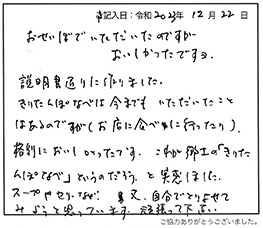 記入日：令和2023年12月22日
おせいぼでいただいたのですが
おいしかったですョ.
説明書通りに作りました.
きりたんぽなべは今までもいただいたこと
はあるのですが(お店に食べに行ったり).
格別においしかったです. これが郷土の「きりた
んぽなべ」というのだろう、と実感しました.
スープやせり、など. 又、自分でとりよせて
みようと思っています. 頑張って下さい
ご協力ありがとうございました。